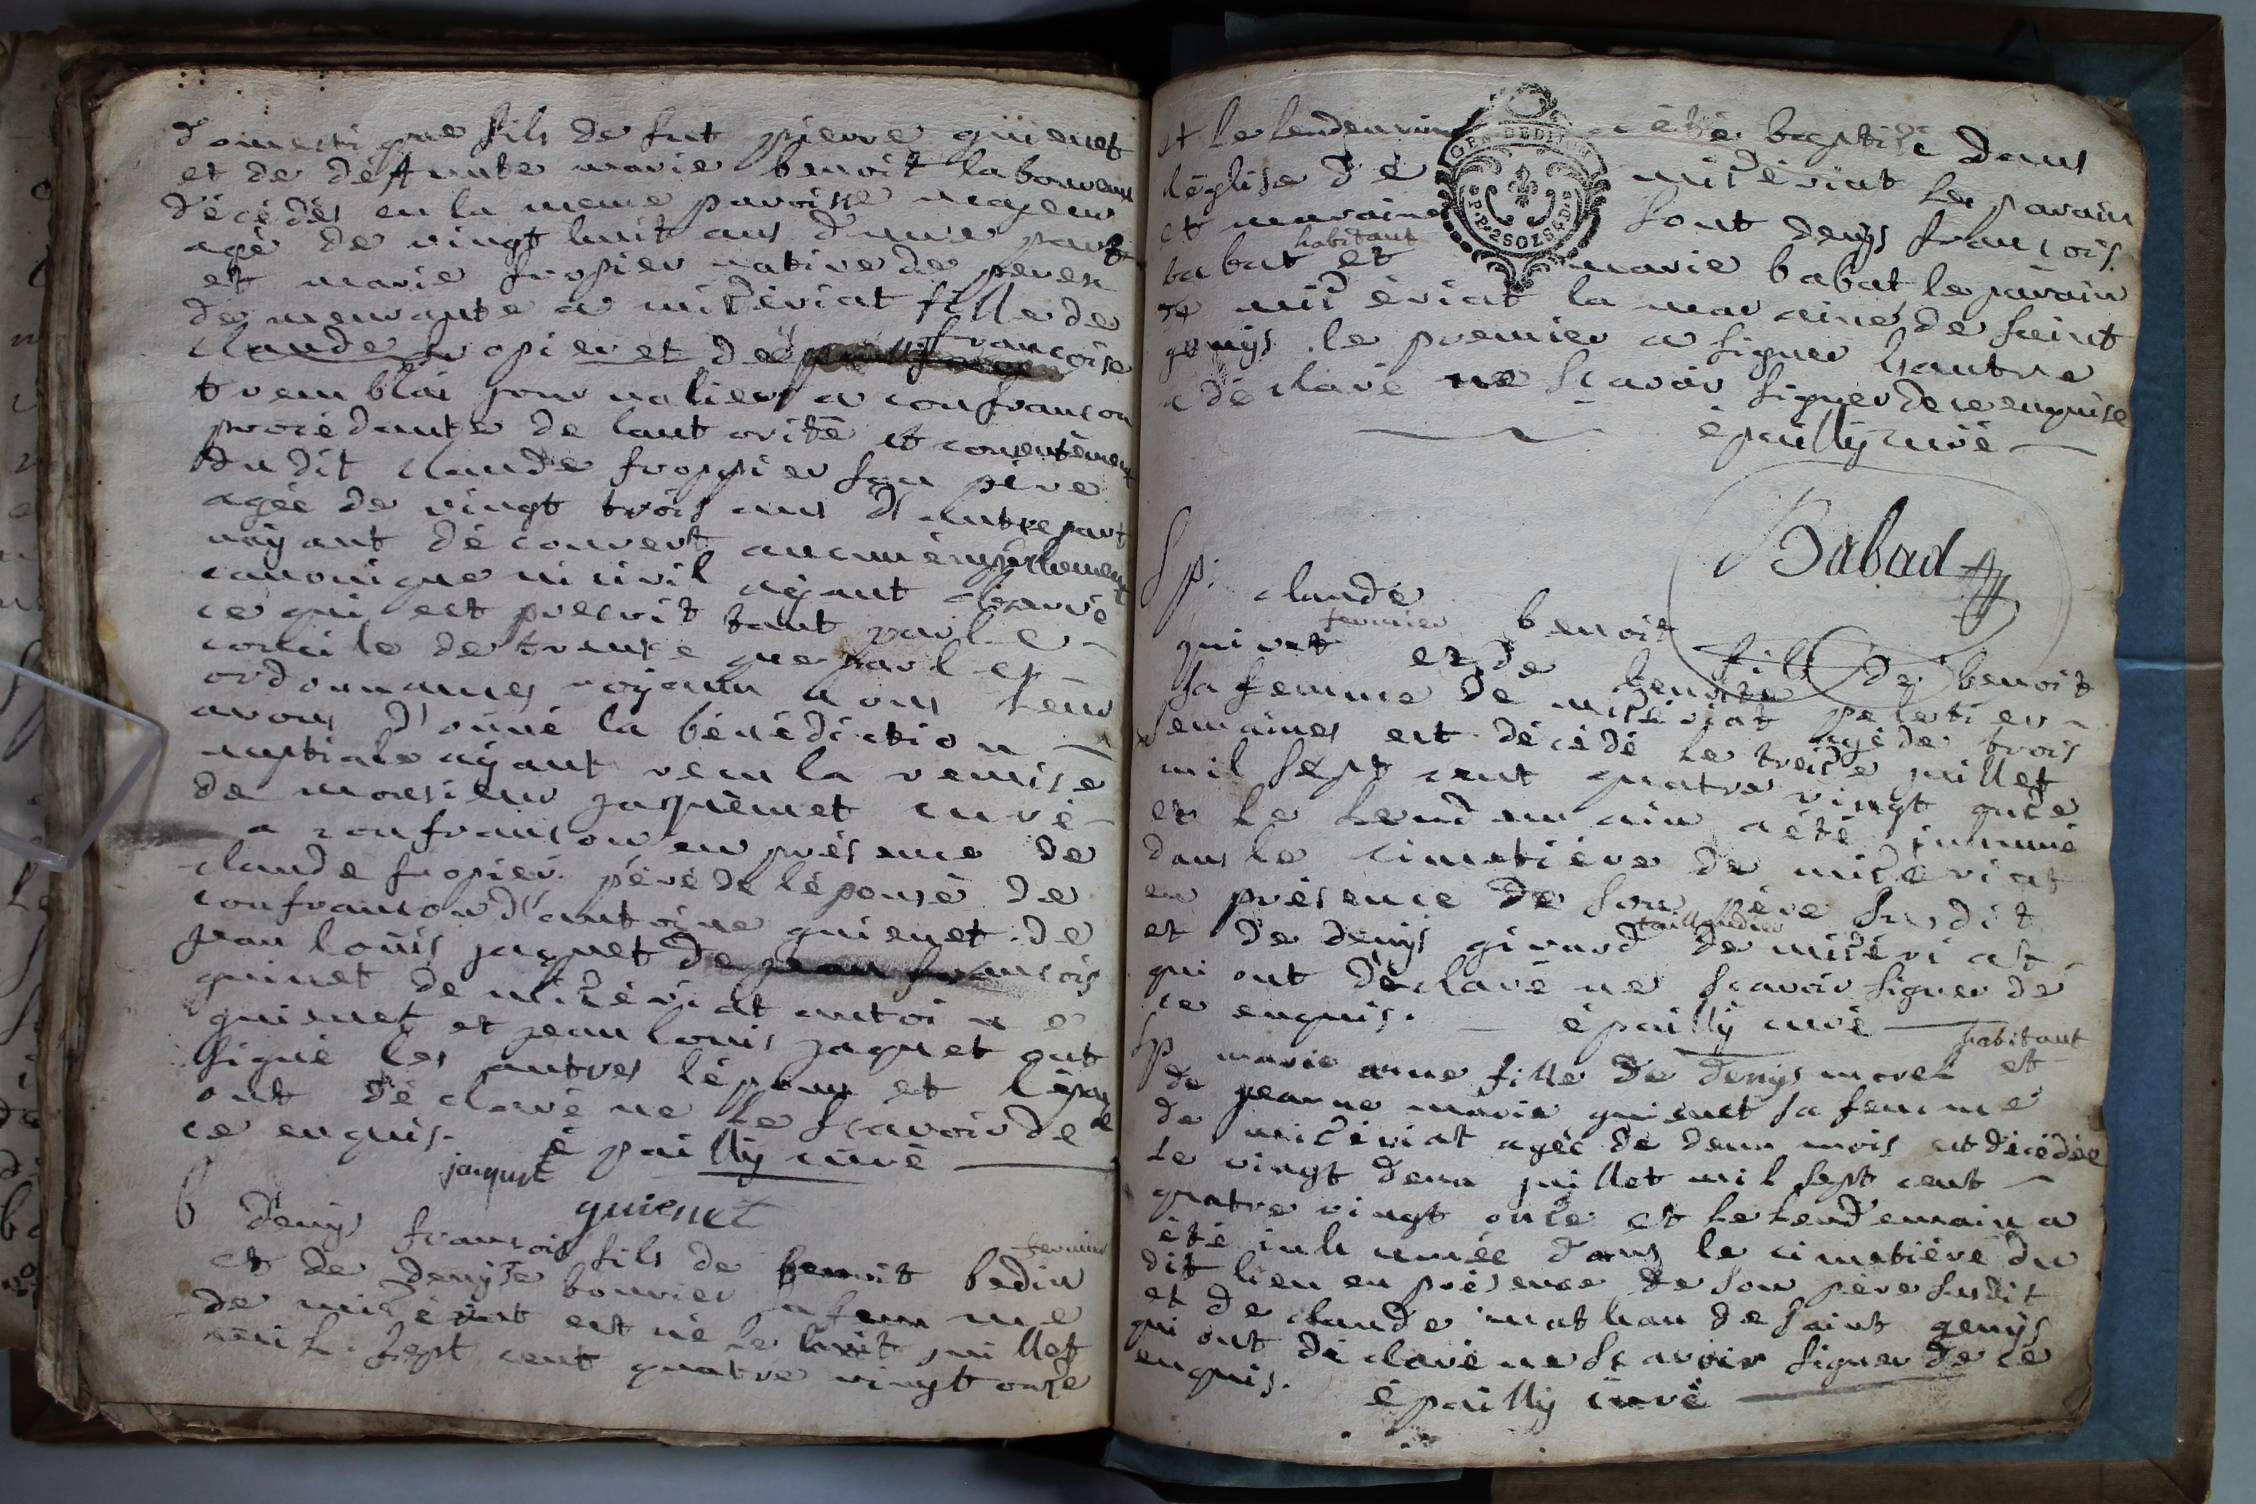 domestique fils de fut pierre guienet
et de deffunte marie benoit laboureurs
décédés en la meme paroisse majeur
agé de vingt huit ans d'une part
et marie fropier native de perex
demeurante a mizériat fille de
claude fropier et de françoise
tremblai journaliers a confrançon
procédante de lautorité et consentement
dudit claude froppier son père
agée de vingt trois ans d'autre part
nayant découvert aucun émpèchement
canonique ni civil ayant observé
ce qui est prescrit tant par le
concile de trente que par les
ordonnances royaux nous leur
avons donné la bénédiction
nuptiale ayant veu la remise
de monsieur jaquemet curé
a confrançon en présence de
claude fropier père de lépouse de
confrançon d'antoine guienet de
jean loüis jaquet de jean françois
guinet de mizériat antoine
guienet et jean louis jaquet ont
signé les autres lépoux et lépouse
ont déclaré ne le scavoir de
ce enquis. é pailly curé
jaquet
guienet
b denys françois fils de benoit bedin fermier
et de denyse bouvier sa femme
de mizériat est né le huit juillet
mil sept cent quatre vingt onze
et le lendemain a été baptisé dans
léglise de mizériat les parain
et maraine sont denys françois
babat habitant et marie babat le parain
de mizériat la maraine de saint
genys le premier a signer lautre
a déclaré ne scavoir signer de ce enquise
é pailly curé
Babad
Sp. claude benoit fils de benoit
guivet fermier et de benoite peletier
sa femme de mizériat agé de trois
semaines est décédé le treize juillet
mil sept cent quatre vingt onze
et le lendemain a été inhumé
dans le cimetiére de mizeriat
en présence de son père susdit
et de denys girard taillandier de mizériat
qui ont déclaré ne scavoir signer de
ce enquis. é pailly curé
Sp marie anne fille de denys morel habitant et
de jeanne marie guienet sa femme
de mizériat agée de deux mois est décédée
le vingt deux juillet mil sept cent
quatre vingt onze et le lendemain a
été inhumée dans le cimetiére du
dit lieu en présence de son père susdit
et de claude mathan de saint genys
qui ont déclaré ne scavoir signer de ce
enquis.
é pailly curé